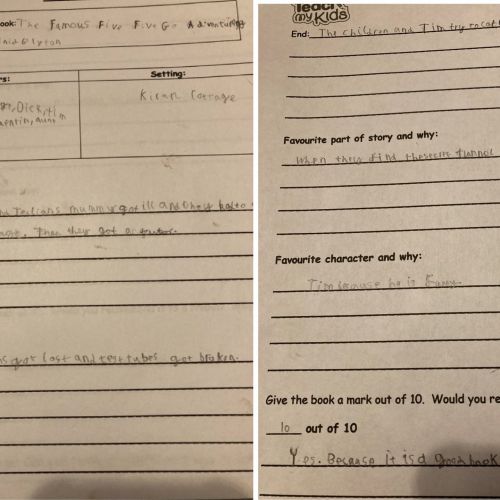 ook: The Famous Five Five Go Adventuring
nid Blyton
rs:
Setting:
Dick, Tim
Kiran Cottage
entin, aun
mummy got ill and they had to
Then they got a tutor.
got lost and test tubes got broken.
Teach
my Kids
End: The children and Tim try to cat
Favourite part of story and why:
When they find the secret tunnel
Favourite character and why:
Tim because he is Funny.
Give the book a mark out of 10. Would you re
10 out of 10
Yes. Because it is a good book